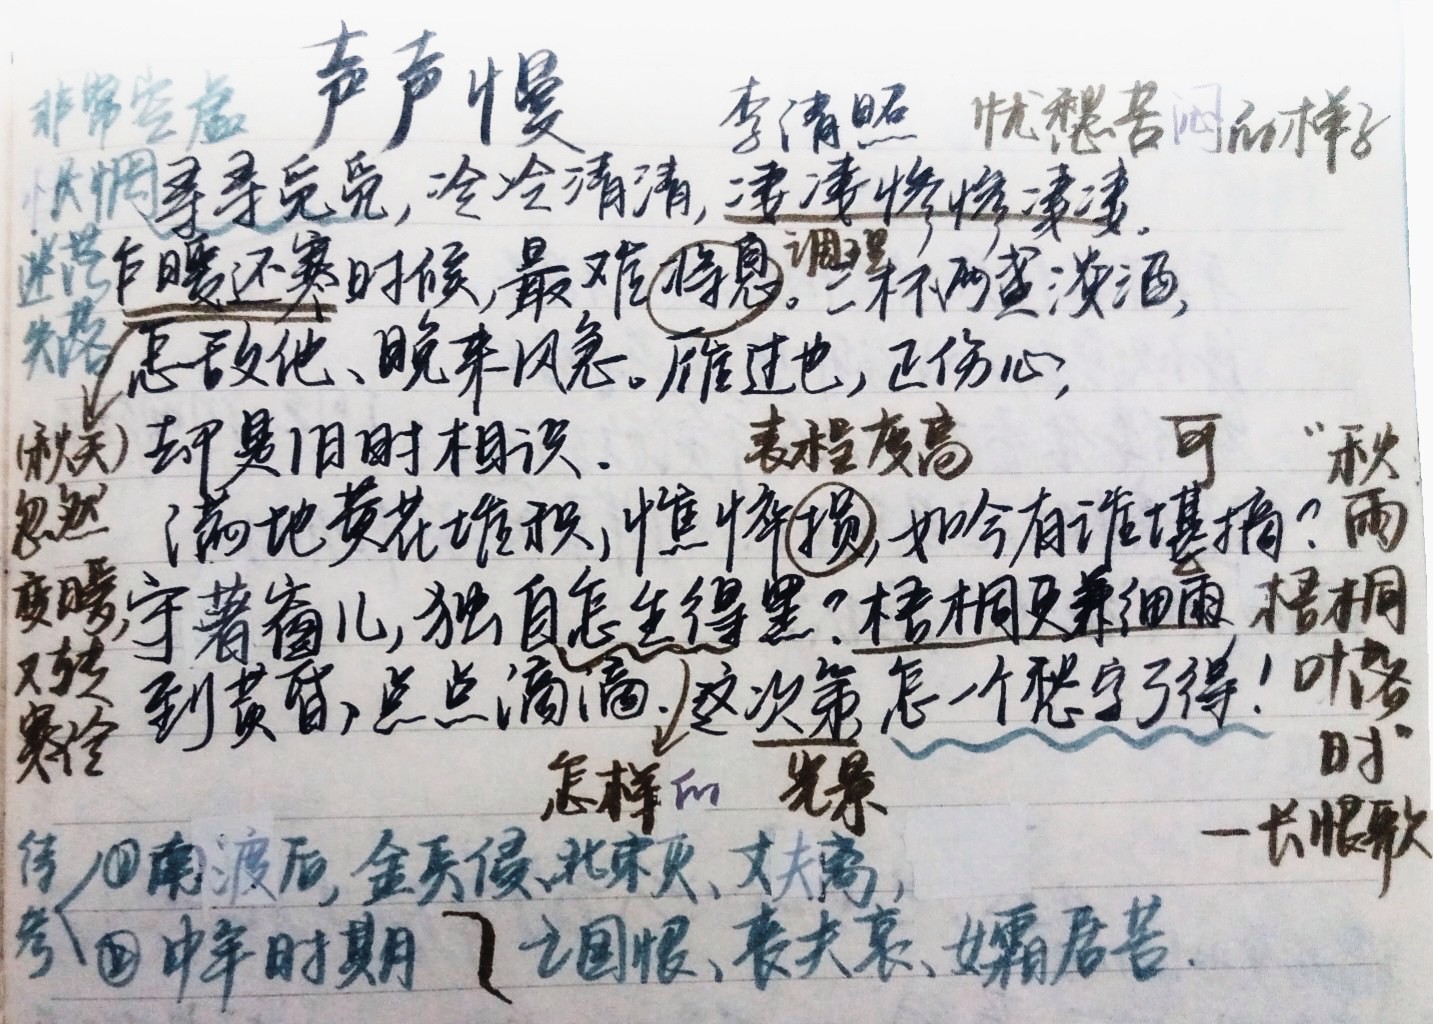 声声慢
李清照
非常空虚
惆怅
迷茫
失落
忧愁苦闷的样子
寻寻觅觅，冷冷清清，凄凄惨惨凄凄。
乍暖还寒时候，最难将息。三杯两盏淡酒，
调理
怎敌他、晚来风急。雁过也，正伤心，
却是旧时相识。
(秋天)
忽然
变暖，
又转
寒冷
表程度高
可
满地黄花堆积，憔悴损，如今有谁堪摘？
守著窗儿，独自怎生得黑？梧桐更兼细雨
到黄昏，点点滴滴。这次第怎一个愁字了得！
怎样的
光景
"秋
雨
梧桐
叶落
时"
—长恨歌
待考
①南渡后，金兵侵、北宋灭、丈夫离，
②中年时期
亡国恨、丧夫哀、孀居苦.